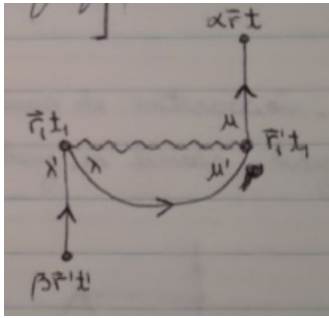 α r⃗ t
μ
r⃗₁ t₁
r⃗₁' t₁
λ' λ μ'
β r⃗' t'